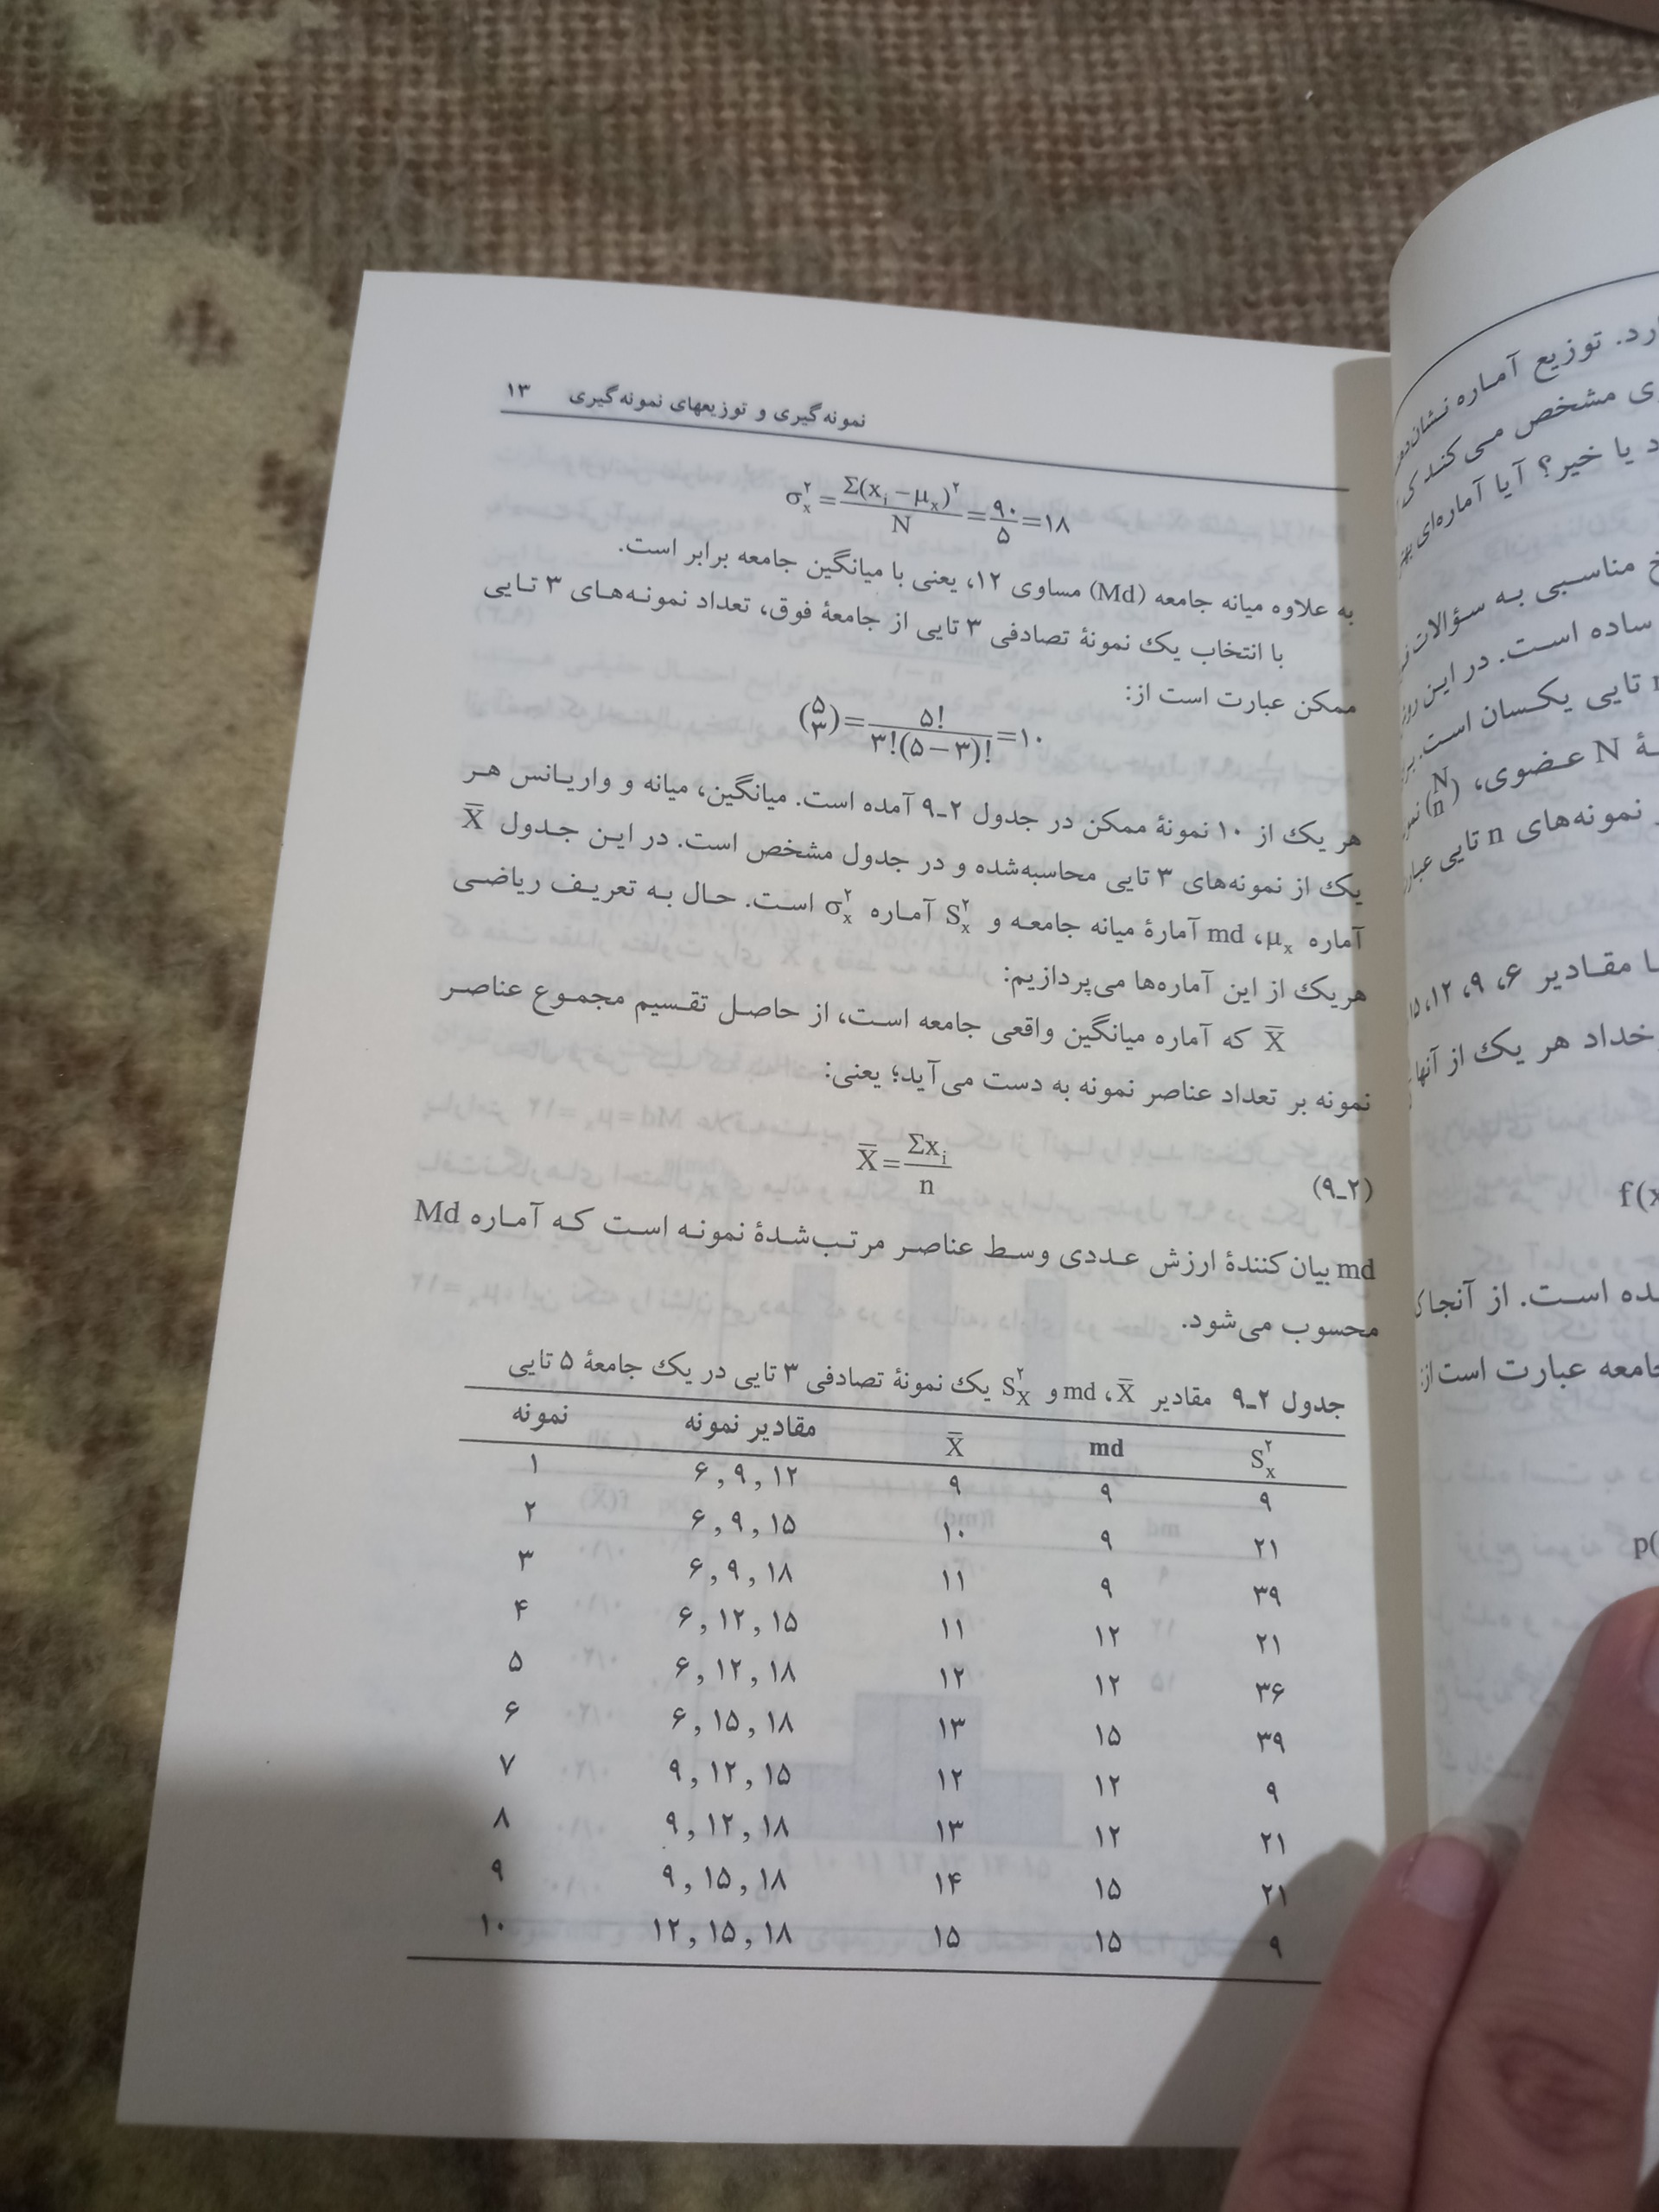 نمونه‌گیری و توزیعهای نمونه‌گیری ۱۳
σₓ² = Σ(xᵢ − μₓ)² / N = ۹۰ / ۵ = ۱۸
به علاوه میانه جامعه (Md) مساوی ۱۲، یعنی با میانگین جامعه برابر است.
با انتخاب یک نمونهٔ تصادفی ۳ تایی از جامعهٔ فوق، تعداد نمونه‌های ۳ تایی
ممکن عبارت است از:
(۵ ۳) = ۵! / ۳!(۵ − ۳)! = ۱۰
هر یک از ۱۰ نمونهٔ ممکن در جدول ۲ـ۹ آمده است. میانگین، میانه و واریانس هر
یک از نمونه‌های ۳ تایی محاسبه‌شده و در جدول مشخص است. در این جدول X̅
آماره μₓ، md آمارهٔ میانه جامعه و Sₓ² آماره σₓ² است. حال به تعریف ریاضی
هریک از این آماره‌ها می‌پردازیم:
X̅ که آماره میانگین واقعی جامعه است، از حاصل تقسیم مجموع عناصر
نمونه بر تعداد عناصر نمونه به دست می‌آید؛ یعنی:
X̅ = Σxᵢ / n (۲ـ۹)
md بیان‌کنندهٔ ارزش عددی وسط عناصر مرتب‌شدهٔ نمونه است که آماره Md
محسوب می‌شود.
جدول ۲ـ۹ مقادیر X̅، md و S_X² یک نمونهٔ تصادفی ۳ تایی در یک جامعهٔ ۵ تایی
نمونه مقادیر نمونه X̅ md Sₓ²
۱ ۶ , ۹ , ۱۲ ۹ ۹ ۹
۲ ۶ , ۹ , ۱۵ ۱۰ ۹ ۲۱
۳ ۶ , ۹ , ۱۸ ۱۱ ۹ ۳۹
۴ ۶ , ۱۲ , ۱۵ ۱۱ ۱۲ ۲۱
۵ ۶ , ۱۲ , ۱۸ ۱۲ ۱۲ ۳۶
۶ ۶ , ۱۵ , ۱۸ ۱۳ ۱۵ ۳۹
۷ ۹ , ۱۲ , ۱۵ ۱۲ ۱۲ ۹
۸ ۹ , ۱۲ , ۱۸ ۱۳ ۱۲ ۲۱
۹ ۹ , ۱۵ , ۱۸ ۱۴ ۱۵ ۲۱
۱۰ ۱۲ , ۱۵ , ۱۸ ۱۵ ۱۵ ۹
توزیع آماره
مشخص می‌کنند
یا خیر؟ آیا آماره‌ای
مناسبی به سؤالات
ساده است. در این
تایی یکسان است.
N عضوی، (N n)
نمونه‌های n تایی
مقادیر ۶، ۹، ۱۲،
هر یک از آنها
f(x
است. از آنجا
عبارت است از:
p(